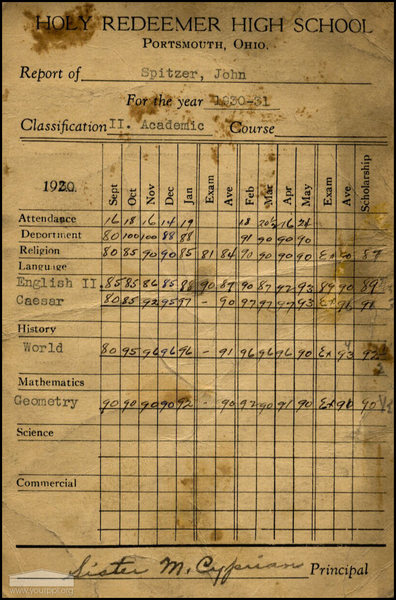 HOLY REDEEMER HIGH SCHOOL
PORTSMOUTH, OHIO.
Report of Spitzer, John
For the year 1930-31
Classification II. Academic Course
19 Sept Oct Nov Dec Jan Exam Ave Feb Mar Apr May Exam Ave Scholarship
Attendance 16 18 16 14 19 18 20½ 16 21
Deportment 80 100 100 88 88 91 90 90 90
Religion 80 85 90 90 85 81 84 90 90 90 Ex 90 87
Language
English II. 85 85 86 85 88 90 87 90 87 92 93 89 90 89
Caesar 80 85 92 95 97 - 90 97 97 97 93 Ex 96
History
World 80 95 96 96 96 - 91 96 96 96 90 Ex 93 92
Mathematics
Geometry 90 90 90 90 92 - 90 92 90 91 90 Ex 90 90
Science
Commercial
Sister M. Cyprian Principal
www.yourppl.org